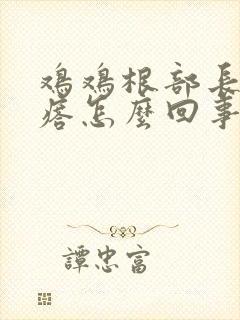 鸡鸡根部長
瘩怎麼回事
譚忠富